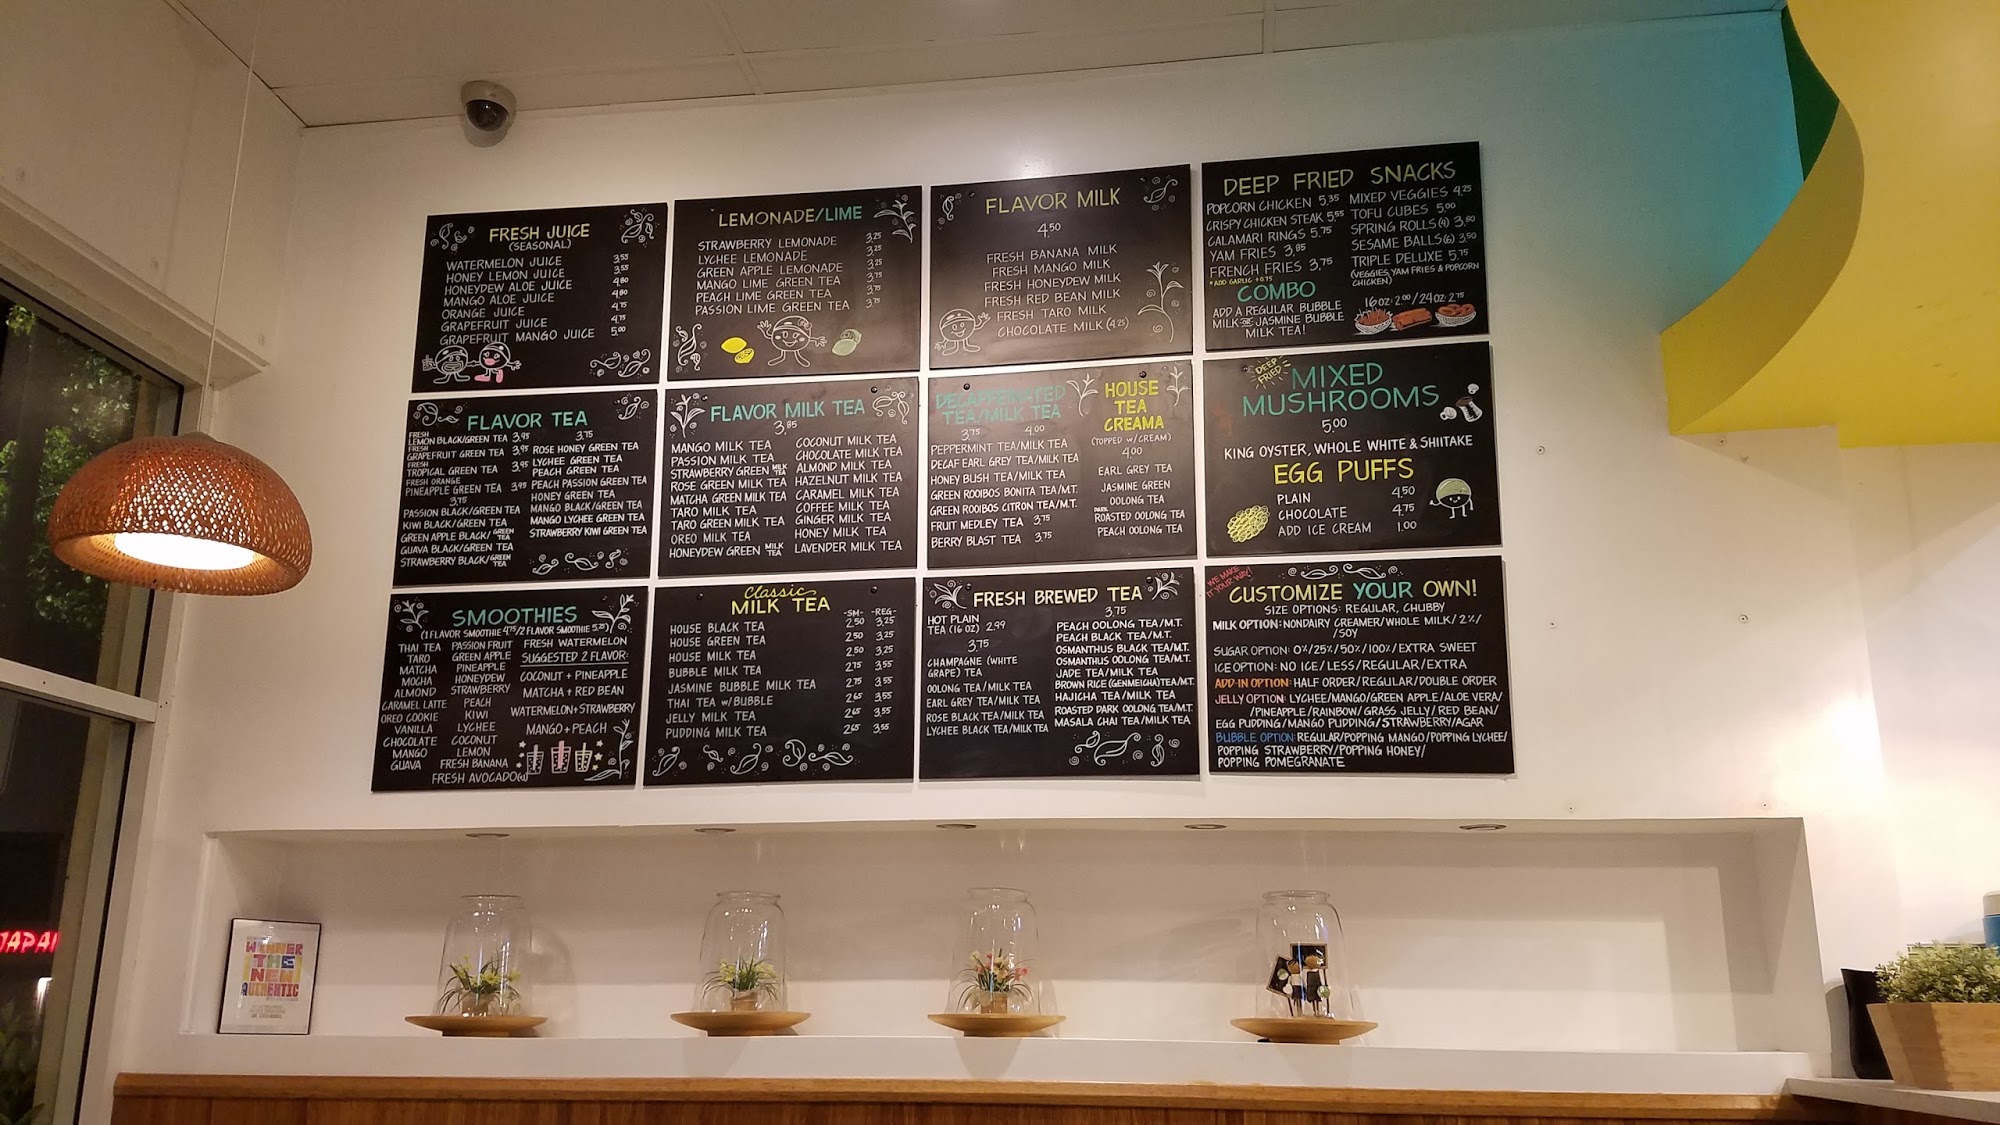 FRESH JUICE
(SEASONAL)
WATERMELON JUICE 3.55
HONEY LEMON JUICE 3.55
HONEYDEW ALOE JUICE 4.80
MANGO ALOE JUICE 4.80
ORANGE JUICE 4.75
GRAPEFRUIT JUICE 4.75
GRAPEFRUIT MANGO JUICE 5.00
LEMONADE/LIME
STRAWBERRY LEMONADE 3.25
LYCHEE LEMONADE 3.25
GREEN APPLE LEMONADE 3.25
MANGO LIME GREEN TEA 3.75
PEACH LIME GREEN TEA 3.75
PASSION LIME GREEN TEA 3.75
FLAVOR MILK
4.50
FRESH BANANA MILK
FRESH MANGO MILK
FRESH HONEYDEW MILK
FRESH RED BEAN MILK
FRESH TARO MILK
CHOCOLATE MILK (4.25)
DEEP FRIED SNACKS
POPCORN CHICKEN 5.35
CRISPY CHICKEN STEAK 5.55
CALAMARI RINGS 5.75
YAM FRIES 3.85
FRENCH FRIES 3.75
*ADD GARLIC +0.75
MIXED VEGGIES 4.25
TOFU CUBES 5.00
SPRING ROLLS (4) 3.80
SESAME BALLS (6) 3.50
TRIPLE DELUXE 5.75
(VEGGIES, YAM FRIES & POPCORN
CHICKEN)
COMBO
ADD A REGULAR BUBBLE
MILK OR JASMINE BUBBLE
MILK TEA!
16 OZ 2.00 / 24 OZ 2.75
FLAVOR TEA
FRESH
LEMON BLACK/GREEN TEA 3.95
FRESH
GRAPEFRUIT GREEN TEA 3.95
FRESH
TROPICAL GREEN TEA 3.95
FRESH ORANGE
PINEAPPLE GREEN TEA 3.95
3.75
PASSION BLACK/GREEN TEA
KIWI BLACK/GREEN TEA
GREEN APPLE BLACK/GREEN TEA
GUAVA BLACK/GREEN TEA
STRAWBERRY BLACK/GREEN TEA
3.75
ROSE HONEY GREEN TEA
LYCHEE GREEN TEA
PEACH GREEN TEA
PEACH PASSION GREEN TEA
HONEY GREEN TEA
MANGO BLACK/GREEN TEA
MANGO LYCHEE GREEN TEA
STRAWBERRY KIWI GREEN TEA
FLAVOR MILK TEA
3.85
MANGO MILK TEA
PASSION MILK TEA
STRAWBERRY GREEN MILK TEA
ROSE GREEN MILK TEA
MATCHA GREEN MILK TEA
TARO MILK TEA
TARO GREEN MILK TEA
OREO MILK TEA
HONEYDEW GREEN MILK TEA
COCONUT MILK TEA
CHOCOLATE MILK TEA
ALMOND MILK TEA
HAZELNUT MILK TEA
CARAMEL MILK TEA
COFFEE MILK TEA
GINGER MILK TEA
HONEY MILK TEA
LAVENDER MILK TEA
DECAFFEINATED
TEA/MILK TEA
3.75 4.00
PEPPERMINT TEA/MILK TEA
DECAF EARL GREY TEA/MILK TEA
HONEY BUSH TEA/MILK TEA
GREEN ROOIBOS BONITA TEA/M.T.
GREEN ROOIBOS CITRON TEA/M.T.
FRUIT MEDLEY TEA 3.75
BERRY BLAST TEA 3.75
HOUSE
TEA
CREAMA
(TOPPED W/CREAM)
4.00
EARL GREY TEA
JASMINE GREEN
OOLONG TEA
DARK
ROASTED OOLONG TEA
PEACH OOLONG TEA
DEEP
FRIED
MIXED
MUSHROOMS
5.00
KING OYSTER, WHOLE WHITE & SHIITAKE
EGG PUFFS
PLAIN 4.50
CHOCOLATE 4.75
ADD ICE CREAM 1.00
SMOOTHIES
(1 FLAVOR SMOOTHIE 4.75/2 FLAVOR SMOOTHIE 5.25)
THAI TEA
TARO
MATCHA
MOCHA
ALMOND
CARAMEL LATTE
OREO COOKIE
VANILLA
CHOCOLATE
MANGO
GUAVA
PASSION FRUIT
GREEN APPLE
PINEAPPLE
HONEYDEW
STRAWBERRY
PEACH
KIWI
LYCHEE
COCONUT
LEMON
FRESH BANANA
FRESH AVOCADO
FRESH WATERMELON
SUGGESTED 2 FLAVOR:
COCONUT + PINEAPPLE
MATCHA + RED BEAN
WATERMELON + STRAWBERRY
MANGO + PEACH
Classic
MILK TEA
-SM- -REG-
HOUSE BLACK TEA 2.50 3.25
HOUSE GREEN TEA 2.50 3.25
HOUSE MILK TEA 2.50 3.25
BUBBLE MILK TEA 2.75 3.55
JASMINE BUBBLE MILK TEA 2.75 3.55
THAI TEA w/BUBBLE 2.65 3.55
JELLY MILK TEA 2.65 3.55
PUDDING MILK TEA 2.65 3.55
FRESH BREWED TEA
HOT PLAIN
TEA (16 OZ) 2.99
3.75
CHAMPAGNE (WHITE
GRAPE) TEA
OOLONG TEA/MILK TEA
EARL GREY TEA/MILK TEA
ROSE BLACK TEA/MILK TEA
LYCHEE BLACK TEA/MILK TEA
3.75
PEACH OOLONG TEA/M.T.
PEACH BLACK TEA/M.T.
OSMANTHUS BLACK TEA/M.T.
OSMANTHUS OOLONG TEA/M.T.
JADE TEA/MILK TEA
BROWN RICE (GENMEICHA) TEA/M.T.
HAJICHA TEA/MILK TEA
ROASTED DARK OOLONG TEA/M.T.
MASALA CHAI TEA/MILK TEA
WE MAKE
IT YOUR WAY!
CUSTOMIZE YOUR OWN!
SIZE OPTIONS: REGULAR, CHUBBY
MILK OPTION: NONDAIRY CREAMER/WHOLE MILK/2%/
/SOY
SUGAR OPTION: 0%/25%/50%/100%/EXTRA SWEET
ICE OPTION: NO ICE/LESS/REGULAR/EXTRA
ADD-IN OPTION: HALF ORDER/REGULAR/DOUBLE ORDER
JELLY OPTION: LYCHEE/MANGO/GREEN APPLE/ALOE VERA/
/PINEAPPLE/RAINBOW/GRASS JELLY/RED BEAN/
EGG PUDDING/MANGO PUDDING/STRAWBERRY/AGAR
BUBBLE OPTION: REGULAR/POPPING MANGO/POPPING LYCHEE/
POPPING STRAWBERRY/POPPING HONEY/
POPPING POMEGRANATE
WINNER
THE
NEW
AUTHENTIC